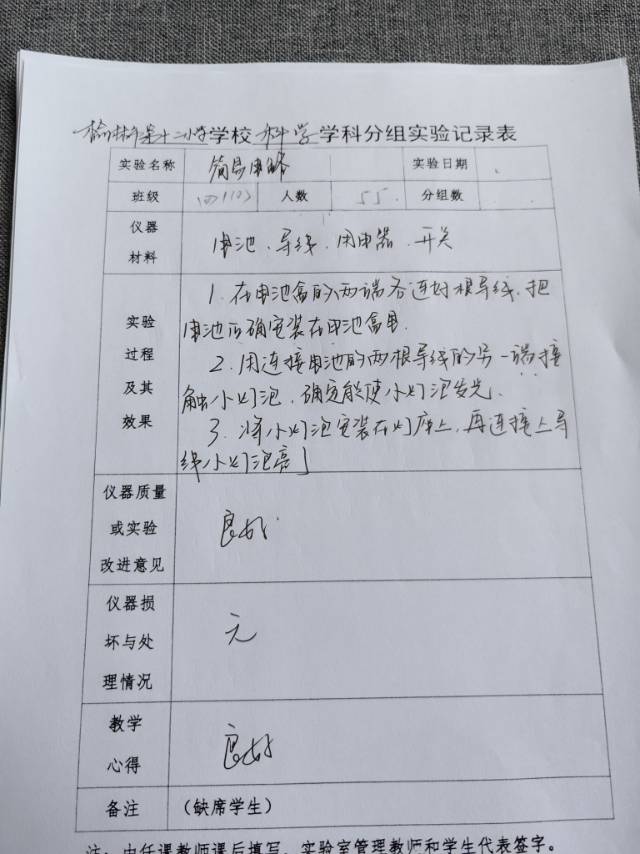 榆林市第十二小学学校 科学 学科分组实验记录表
实验名称 简易电路 实验日期
班级 四(10) 人数 55 分组数
仪器
材料
电池、导线、用电器、开关
实验
过程
及其
效果
1.在电池盒的两端各连好根导线,把
电池正确安装在电池盒里.
2.用连接电池的两根导线的另一端接
触小灯泡,确定能使小灯泡发光.
3.将小灯泡安装在灯座上,再连接上导
线小灯泡亮了
仪器质量
或实验
改进意见
良好.
仪器损
坏与处
理情况
无
教学
心得
良好
备注 (缺席学生)
注:由任课教师课后填写,实验室管理教师和学生代表签字。